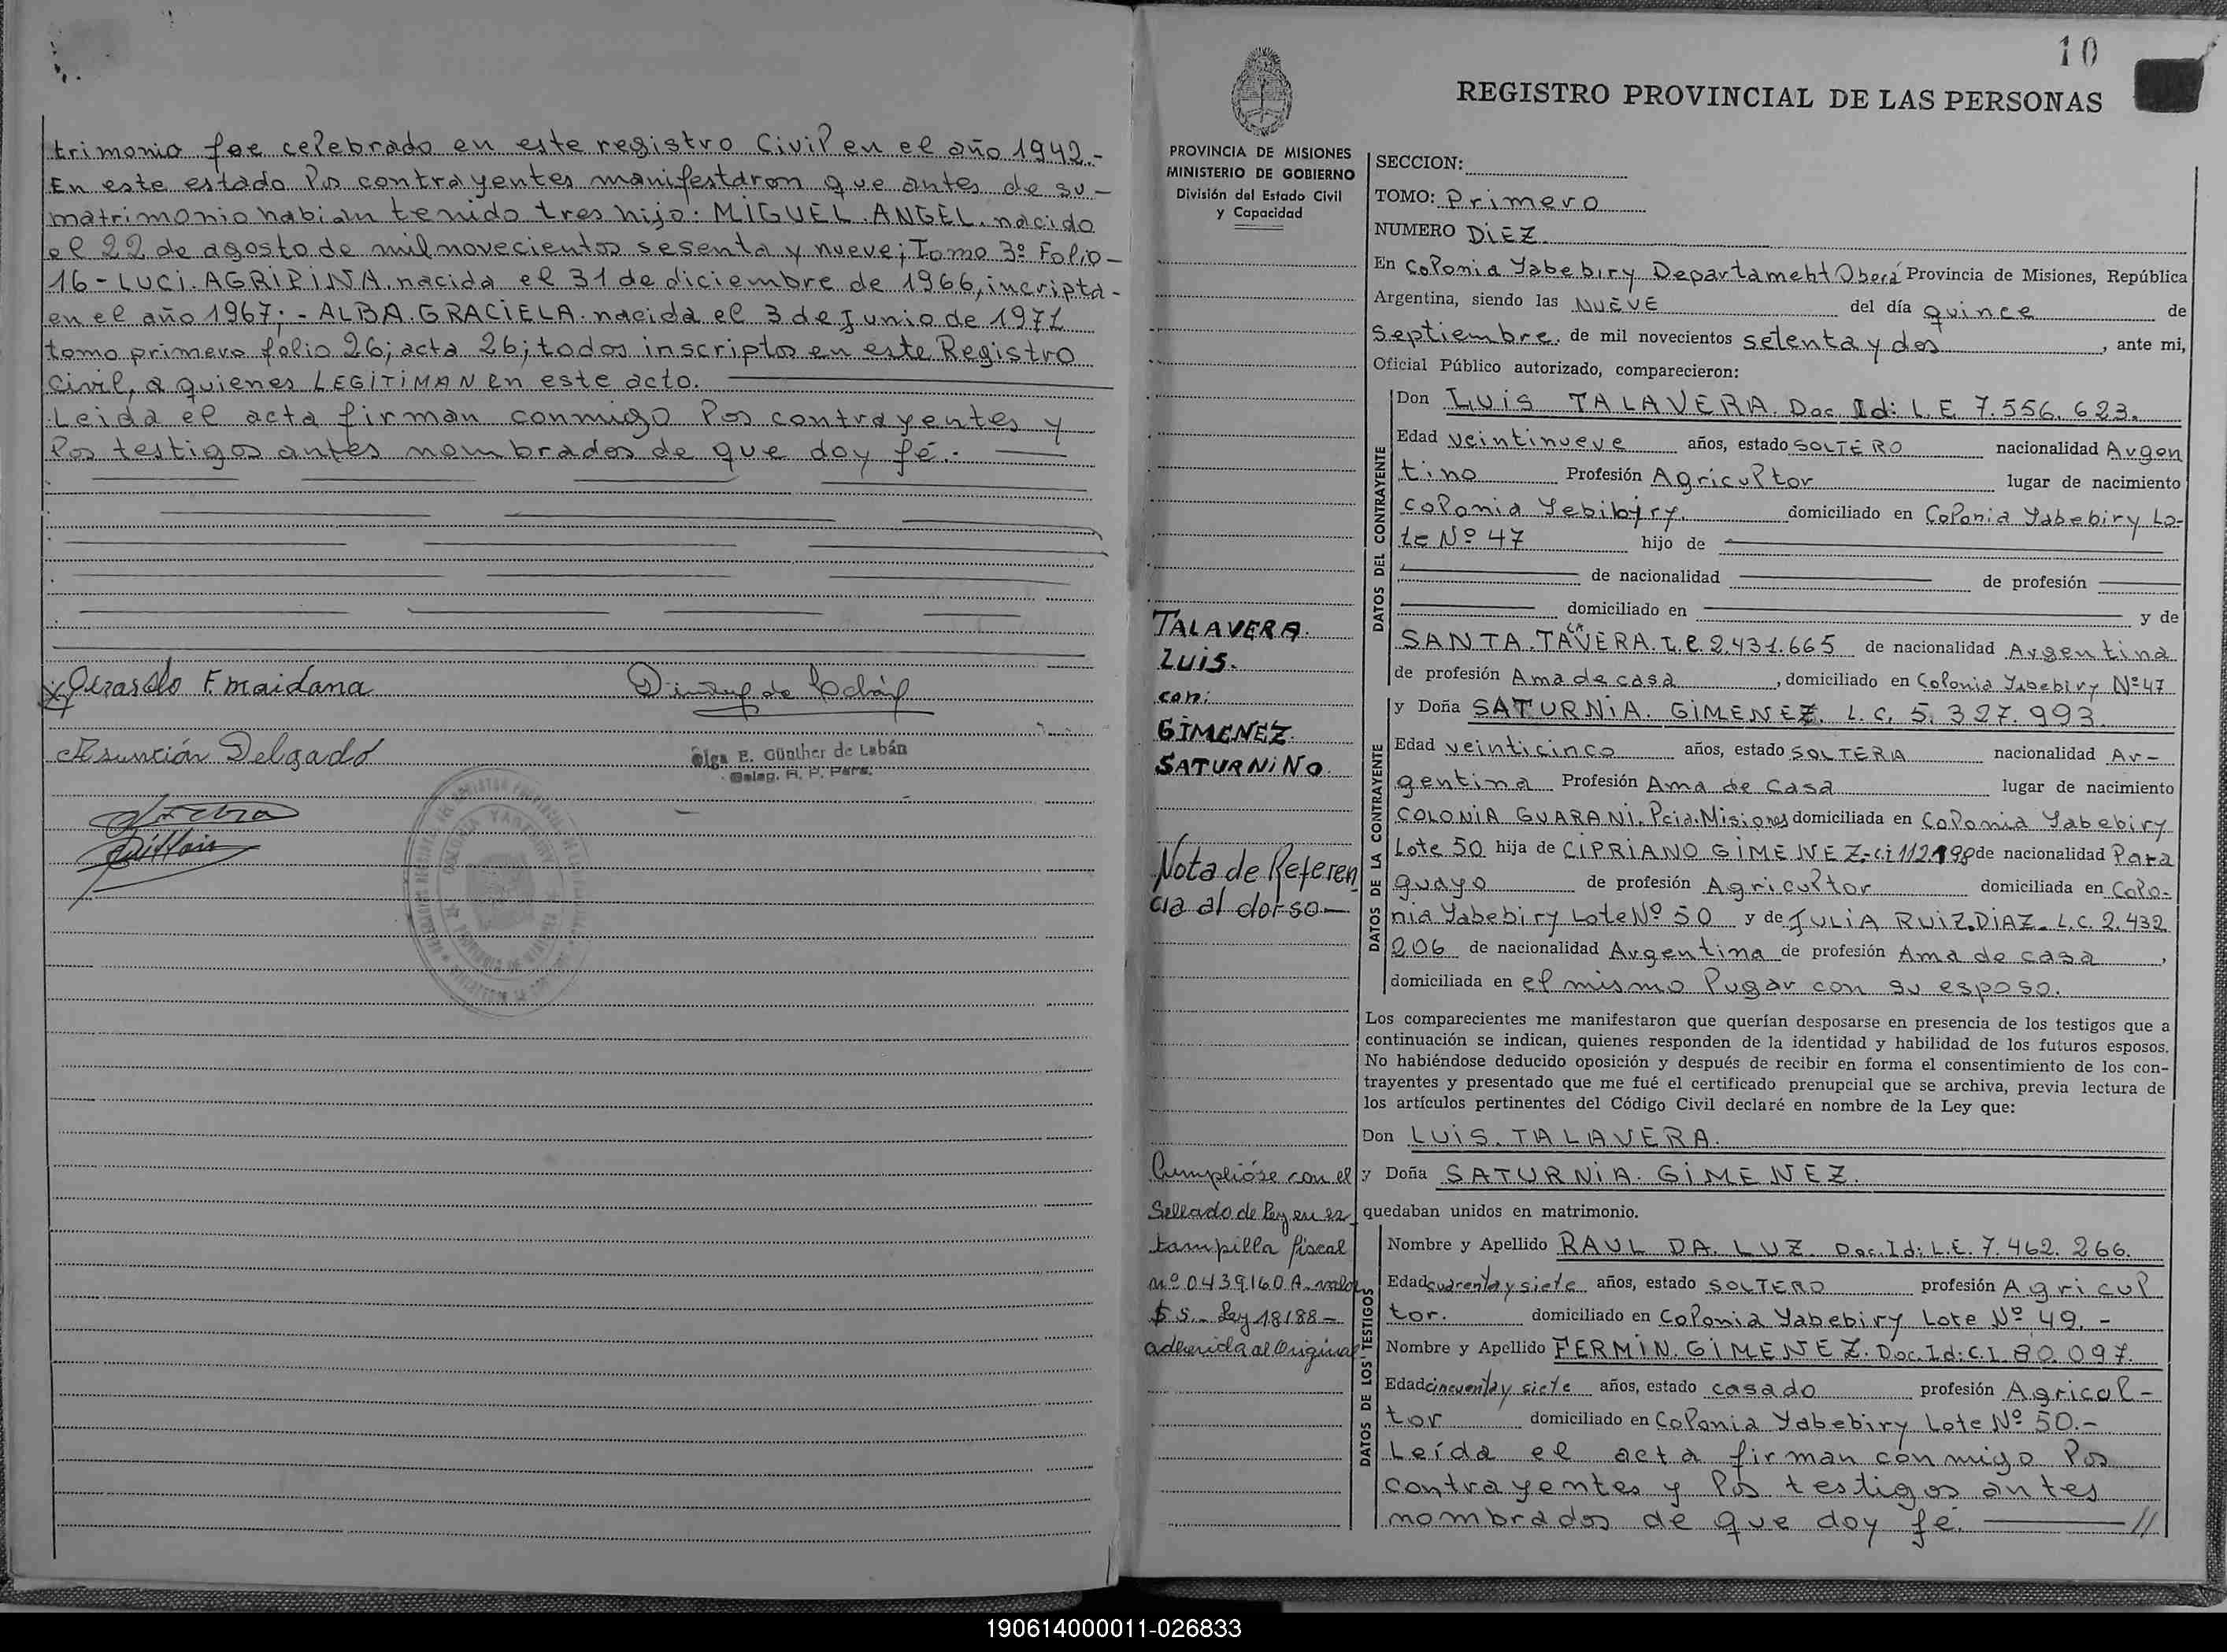 trimonio fue celebrado en este registro Civil en el año 1942.-
En este estado los contrayentes manifestaron que antes de su-
matrimonio habian tenido tres hijo: MIGUEL. ANGEL. nacido
el 22 de agosto de mil novecientos sesenta y nueve; Tomo 3º Folio-
16- LUCI. AGRIPINA. nacida el 31 de diciembre de 1966, incripta-
en el año 1967; - ALBA. GRACIELA. nacida el 3 de Junio de 1971
tomo primero folio 26; acta 26; todos inscriptos en este Registro
Civil, a quienes LEGITIMAN en este acto.
Leida el acta firman conmigo los contrayentes y
los testigos antes nombrados de que doy fé.-
F. maidana
Asunción Delgado
Olga E. Günther de Labán
Deleg. R. P. Pers.
10
REGISTRO PROVINCIAL DE LAS PERSONAS
PROVINCIA DE MISIONES
MINISTERIO DE GOBIERNO
División del Estado Civil
y Capacidad
SECCION:
TOMO: Primero
NUMERO DIEZ
En Colonia Yabebiry Departament Oberá Provincia de Misiones, República
Argentina, siendo las NUEVE del día quince de
Septiembre. de mil novecientos setenta y dos, ante mi,
Oficial Público autorizado, comparecieron:
DATOS DEL CONTRAYENTE
Don LUIS TALAVERA. Doc. Id: L.E. 7.556.623.
Edad veintinueve años, estado SOLTERO nacionalidad Argen
tino Profesión Agricultor lugar de nacimiento
colonia Yebibyry. domiciliado en Colonia Yabebiry Lo-
te Nº 47 hijo de
de nacionalidad de profesión
domiciliado en y de
SANTA. TALAVERA. L.C. 2.431.665 de nacionalidad Argentina
de profesión Ama de casa, domiciliado en Colonia Yabebiry Nº 47
TALAVERA.
LUIS.
con:
GIMENEZ.
SATURNINO.
DATOS DE LA CONTRAYENTE
y Doña SATURNIA. GIMENEZ. L.C. 5.327.993.
Edad veinticinco años, estado SOLTERA nacionalidad Ar-
gentina Profesión Ama de Casa lugar de nacimiento
COLONIA GUARANI. Pcia. Misiones domiciliada en Colonia Yabebiry
Lote 50 hija de CIPRIANO GIMENEZ-C.I 112.198 de nacionalidad Para
guayo de profesión Agricultor domiciliada en Colo-
nia Yabebiry Lote Nº 50 y de JULIA RUIZ.DIAZ. L.C. 2.432
206 de nacionalidad Argentina de profesión Ama de casa,
domiciliada en el mismo lugar con su esposo.
Nota de Referen
cia al dorso-
Los comparecientes me manifestaron que querían desposarse en presencia de los testigos que a
continuación se indican, quienes responden de la identidad y habilidad de los futuros esposos.
No habiéndose deducido oposición y después de recibir en forma el consentimiento de los con-
trayentes y presentado que me fué el certificado prenupcial que se archiva, previa lectura de
los artículos pertinentes del Código Civil declaré en nombre de la Ley que:
Don LUIS. TALAVERA.
y Doña SATURNIA. GIMENEZ.
quedaban unidos en matrimonio.
Cumplióse con el
Sellado de Ley en es
tampilla fiscal
nº 0439160 A. valor
$ 5.- Ley 18188-
adherida al Original
DATOS DE LOS TESTIGOS
Nombre y Apellido RAUL DA. LUZ. Doc. Id: L.E. 7.462.266.
Edad cuarenta y siete años, estado SOLTERO profesión Agricul
tor. domiciliado en Colonia Yabebiry Lote Nº 49. -
Nombre y Apellido FERMIN. GIMENEZ. Doc. Id: C.I. 80.097.
Edad cincuenta y siete años, estado casado profesión Agricul-
tor domiciliado en Colonia Yabebiry Lote Nº 50.-
Leída el acta firman conmigo los
contrayentes y los testigos antes
nombrados de que doy fé. //
190614000011-026833